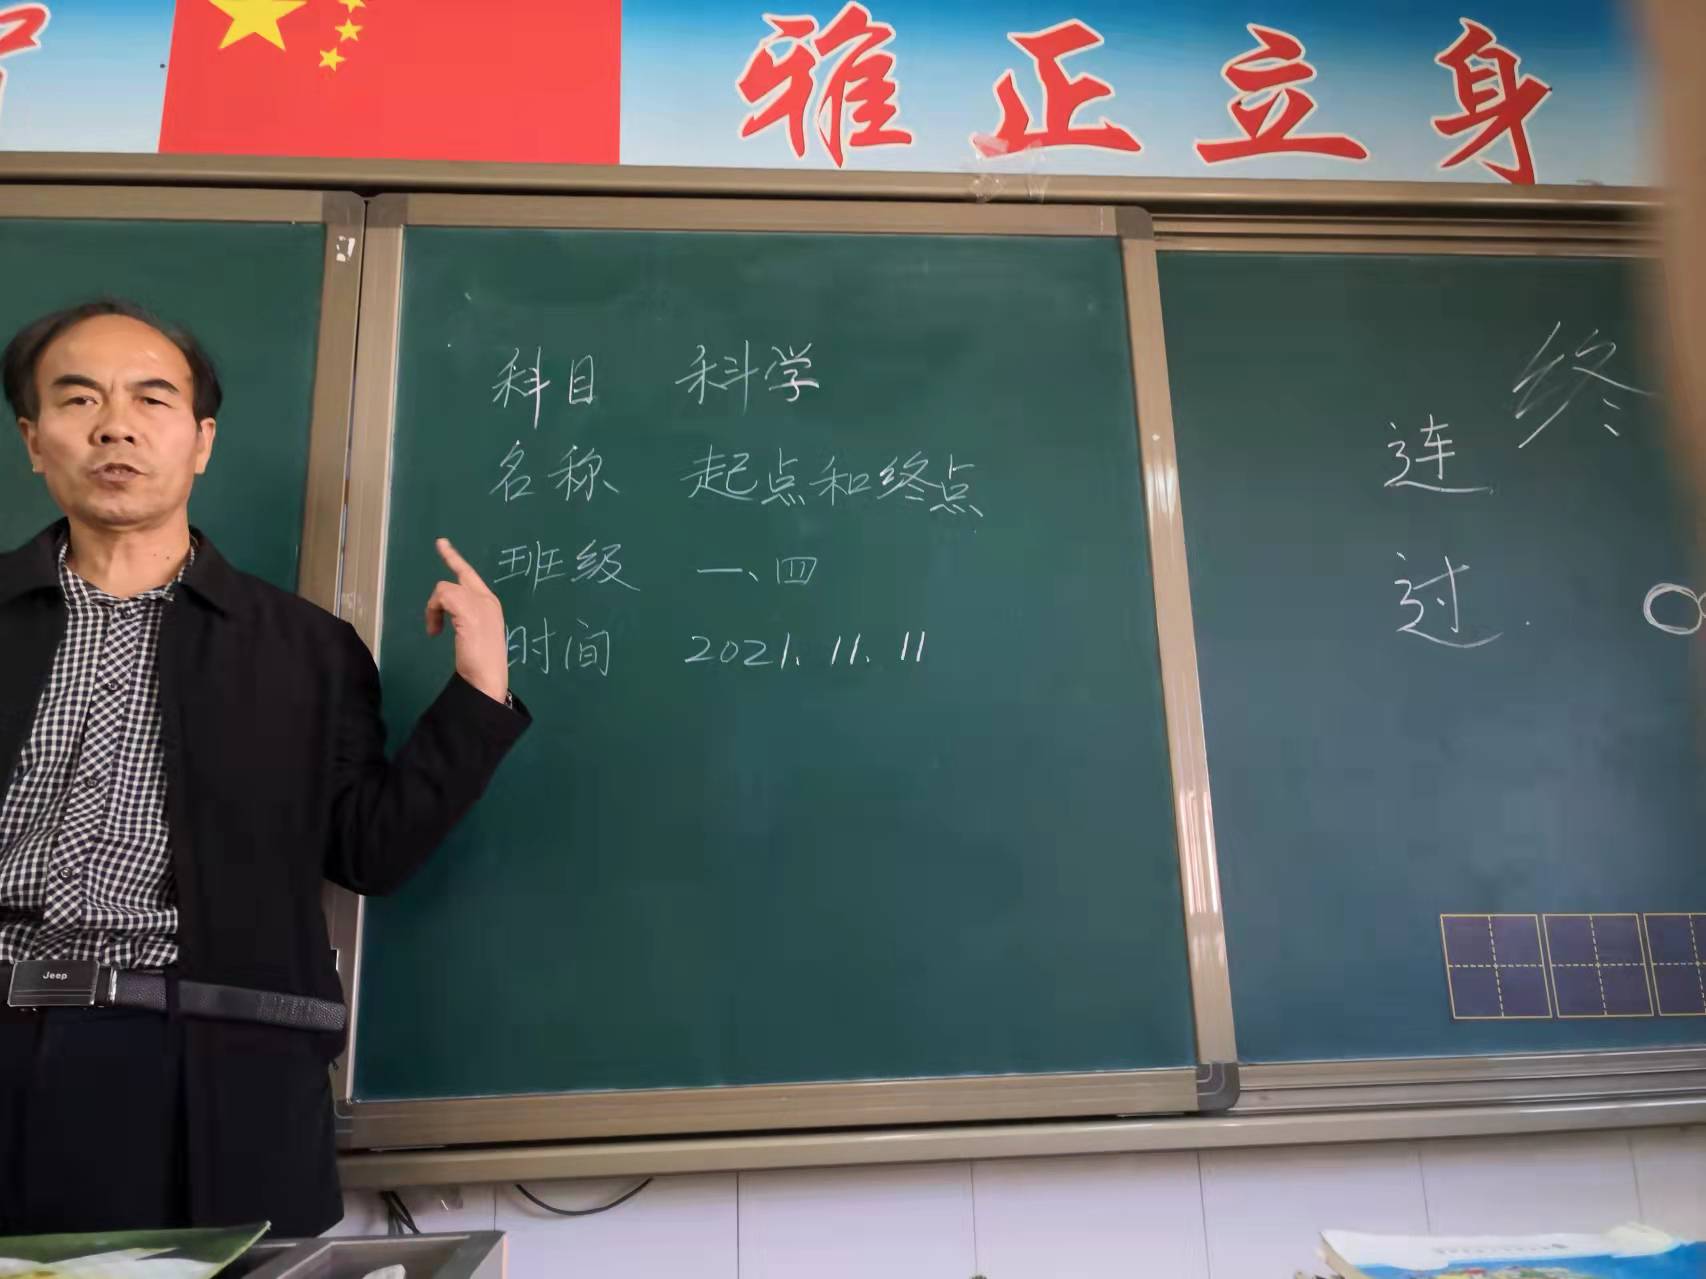 雅正立身
科目 科学
名称 起点和终点
班级 一、四
时间 2021.11.11
终
连
过
Jeep